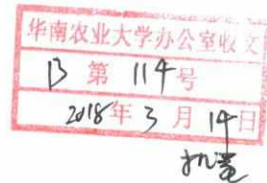 华南农业大学办公室收文
B 第 114 号
2018年 3 月 14日